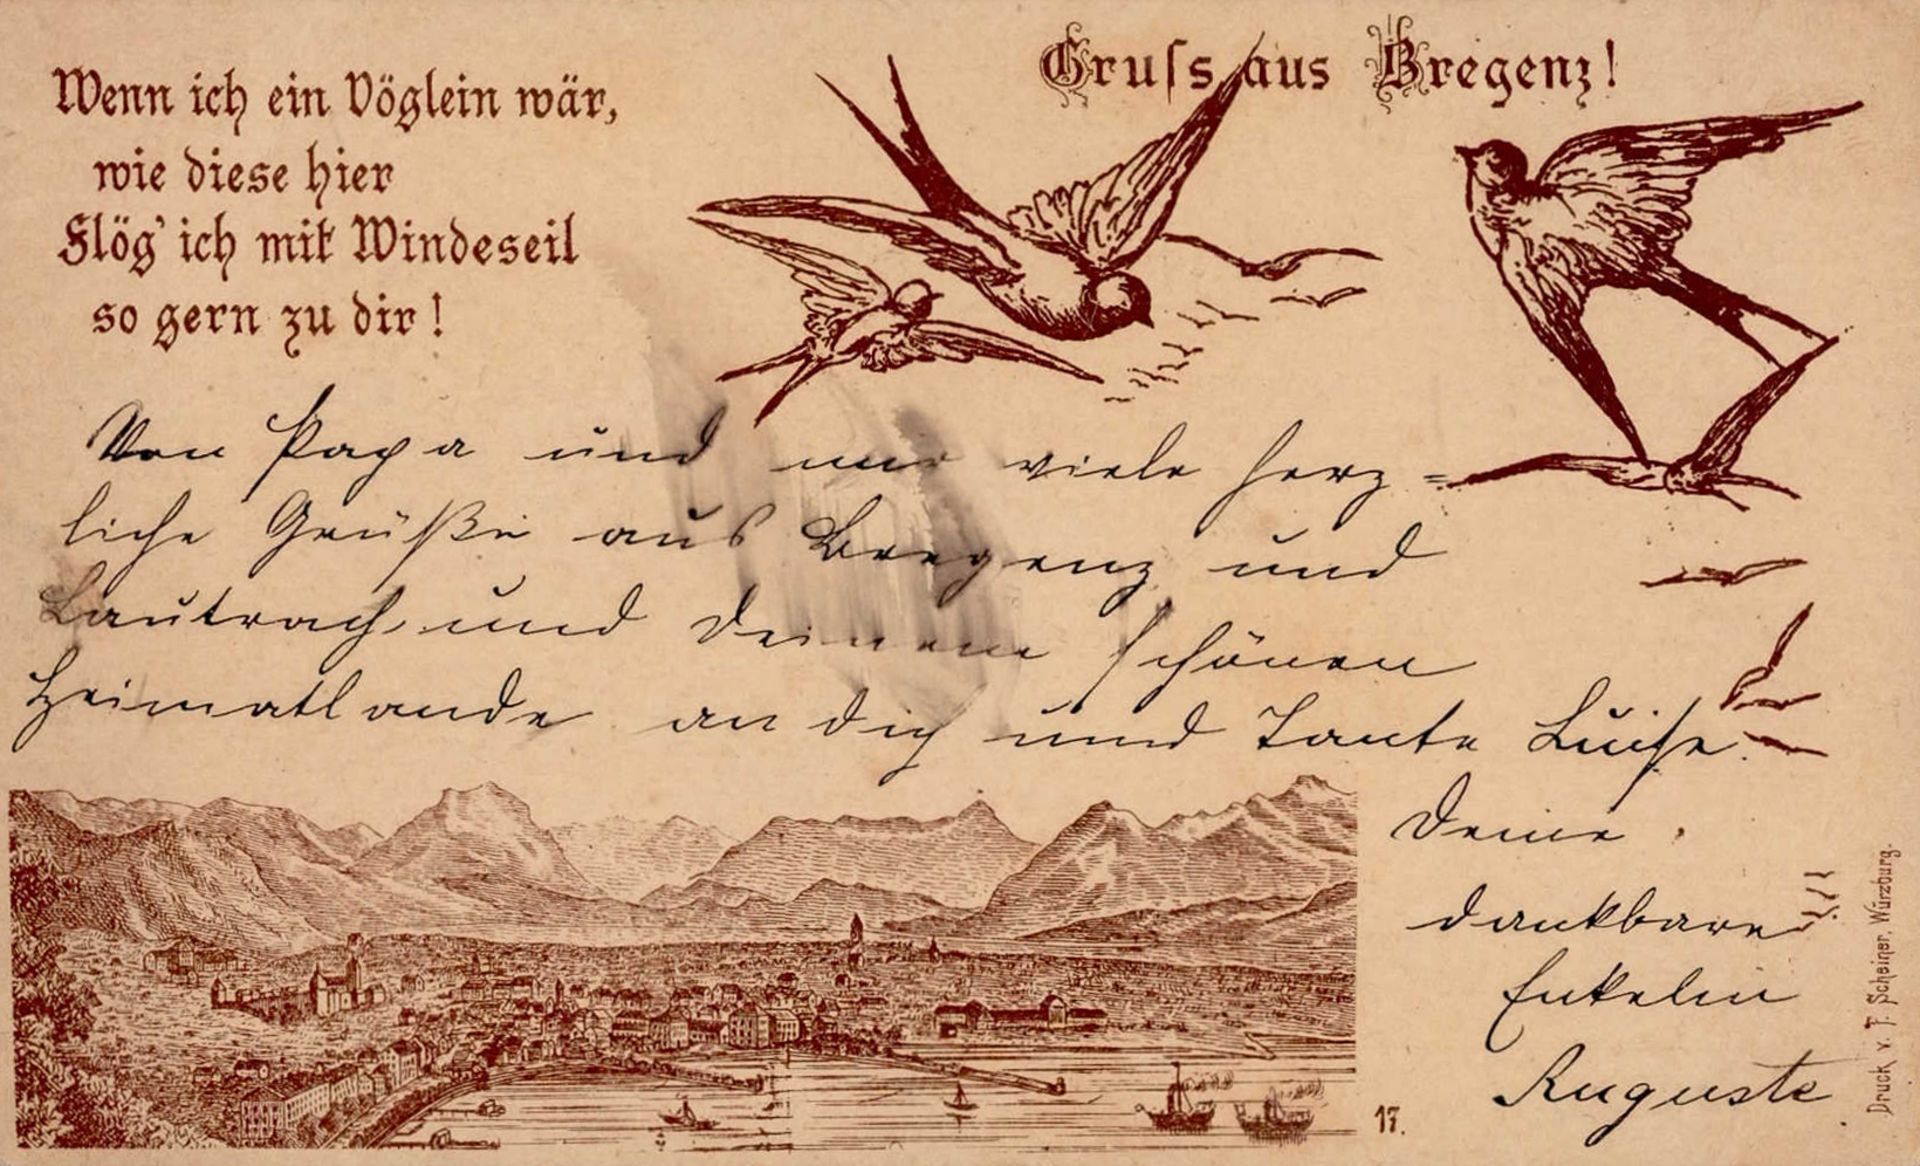 Gruss aus Bregenz!
Wenn ich ein Vöglein wär,
wie diese hier
Flög' ich mit Windeseil
so gern zu dir!
Von Papa und mir viele herz=
liche Grüße aus Bregenz und
Lautrach und Deinem schönen
Heimatlande an dich und Tante Luise.
Deine
dankbare
Enkelin
Auguste
17.
Druck v. F. Scheiner, Würzburg.